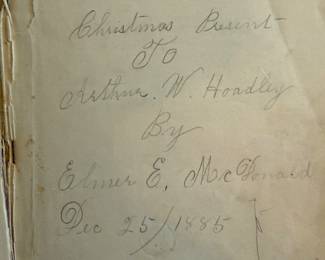 Christmas Present
To
Arthur. W. Hoadley
By
Elmer E. McDonald
Dec 25/1885